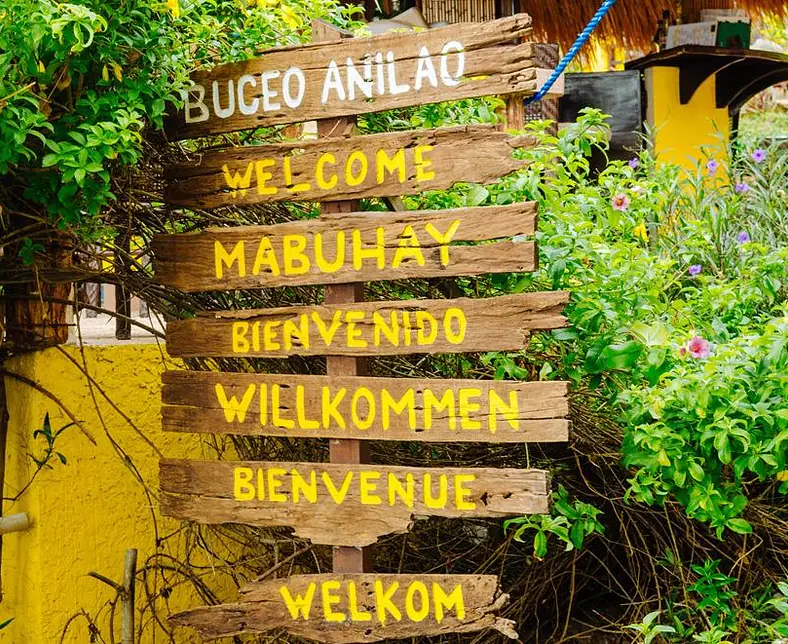 BUCEO ANILAO
WELCOME
MABUHAY
BIENVENIDO
WILLKOMMEN
BIENVENUE
WELKOM